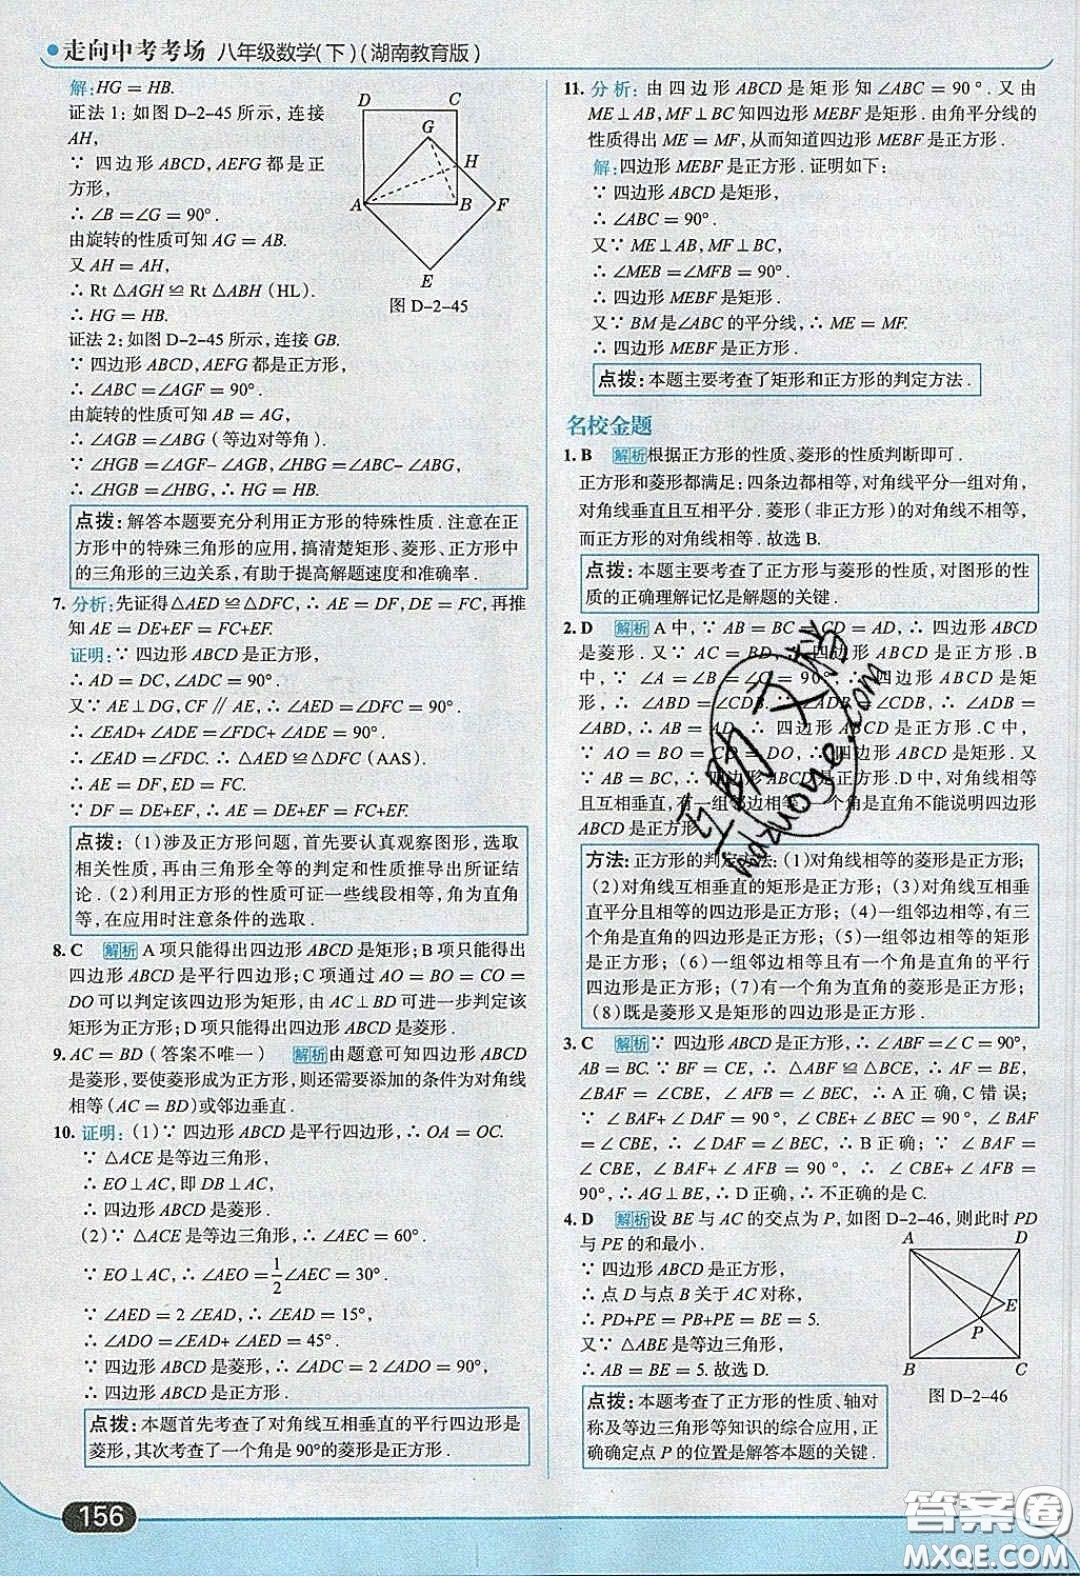 走向中考考场 八年级数学(下)(湖南教育版)
解:HG = HB.
证法 1:如图 D-2-45 所示,连接
AH,
∵ 四边形 ABCD,AEFG 都是正
方形,
∴ ∠B=∠G = 90°.
由旋转的性质可知 AG = AB.
又 AH = AH,
∴ Rt △AGH ≌ Rt △ABH (HL).
∴ HG = HB.
D
C
G
H
A
B
F
E
图 D-2-45
证法 2:如图 D-2-45 所示,连接 GB.
∵ 四边形 ABCD,AEFG 都是正方形,
∴ ∠ABC =∠AGF = 90°.
由旋转的性质可知 AB = AG,
∴ ∠AGB =∠ABG (等边对等角).
∵ ∠HGB =∠AGF- ∠AGB, ∠HBG =∠ABC- ∠ABG,
∴ ∠HGB =∠HBG, ∴ HG = HB.
点拨:解答本题要充分利用正方形的特殊性质.注意在正
方形中的特殊三角形的应用,搞清楚矩形、菱形、正方形中
的三角形的三边关系,有助于提高解题速度和准确率.
7. 分析:先证得△AED ≌△DFC,∴ AE = DF,DE = FC,再推
知 AE = DE+EF = FC+EF.
证明:∵ 四边形 ABCD 是正方形,
∴ AD = DC,∠ADC = 90°.
又∵ AE⊥DG,CF∥AE,∴ ∠AED =∠DFC = 90°.
∴ ∠EAD+ ∠ADE =∠FDC+ ∠ADE = 90°.
∴ ∠EAD =∠FDC. ∴ △AED ≌△DFC (AAS).
∴ AE = DF,ED = FC.
∵ DF = DE+EF,∴ AE = DE+EF = FC+EF.
点拨:(1)涉及正方形问题,首先要认真观察图形,选取
相关性质,再由三角形全等的判定和性质推导出所证结
论.(2)利用正方形的性质可证一些线段相等,角为直角
等,在应用时注意条件的选取.
8. C 解析 A 项只能得出四边形 ABCD 是矩形;B 项能得出
四边形 ABCD 是平行四边形;C 项通过 AO = BO = CO =
DO 可以判定该四边形为矩形,由 AC⊥BD 可进一步判定该
矩形为正方形;D 项只能得出四边形 ABCD 是菱形.
9. AC = BD (答案不唯一) 解析 由题意可知四边形 ABCD
是菱形,要使菱形成为正方形,则还需要添加的条件为对角线
相等(AC = BD)或邻边垂直.
10. 证明:(1)∵ 四边形 ABCD 是平行四边形,∴ OA = OC.
∵ △ACE 是等边三角形,
∴ EO⊥AC,即 DB⊥AC,
∴ 四边形 ABCD 是菱形.
(2)∵ △ACE 是等边三角形,∴ ∠AEC = 60°.
∵ EO⊥AC,∴ ∠AEO =1/2∠AEC = 30°.
∵ ∠AED = 2 ∠EAD,∴ ∠EAD = 15°,
∴ ∠ADO =∠EAD+ ∠AED = 45°.
∵ 四边形 ABCD 是菱形,∴ ∠ADC = 2 ∠ADO = 90°,
∴ 四边形 ABCD 是正方形.
点拨:本题首先考查了对角线互相垂直的平行四边形是
菱形,其次考查了一个角是 90°的菱形是正方形.
156
11. 分析:由四边形 ABCD 是矩形知∠ABC = 90°.又由
ME⊥AB,MF⊥BC 知四边形 MEBF 是矩形.由角平分线的
性质得出 ME = MF,从而知道四边形 MEBF 是正方形.
解:四边形 MEBF 是正方形.证明如下:
∵ 四边形 ABCD 是矩形,
∴ ∠ABC = 90°.
又∵ ME⊥AB,MF⊥BC,
∴ ∠MEB =∠MFB = 90°.
∴ 四边形 MEBF 是矩形.
又∵ BM 是∠ABC 的平分线,∴ ME = MF.
∴ 四边形 MEBF 是正方形.
点拨:本题主要考查了矩形和正方形的判定方法.
名校金题
1. B 解析 根据正方形的性质、菱形的性质判断即可.
正方形和菱形都满足:四条边都相等,对角线平分一组对角,
对角线垂直且互相平分.菱形(非正方形)的对角线不相等,
而正方形的对角线相等.故选 B.
点拨:本题主要考查了正方形与菱形的性质,对图形的性
质的正确理解记忆是解题的关键.
2. D 解析 A 中,∵ AB = BC = CD = AD,∴ 四边形 ABCD
是菱形.又∵ AC = BD,∴ 四边形 ABCD 是正方形.B
中,∵ ∠A =∠B =∠C = 90°,∴ 四边形 ABCD 是矩
形,∴ ∠ABD =∠CDB. ∵ ∠ADB =
∠ABD,∴ AB = AD,∴ 四边形 ABCD 是正方形.C 中,
∵ AO = BO = CO = DO,∴ 四边形 ABCD 是矩形.又
∵ AB = BC,∴ 四边形 ABCD 是正方形.D 中,对角线相等
且互相垂直,有一组邻边相等,一个角是直角不能说明四边形
ABCD 是正方形.
方法:正方形的判定方法:(1)对角线相等的菱形是正方形;
(2)对角线互相垂直的矩形是正方形;(3)对角线互相垂
直平分且相等的四边形是正方形;(4)一组邻边相等,有三
个角是直角的四边形是正方形;(5)一组邻边相等的矩形
是正方形;(6)一组邻边相等且有一个角是直角的平行
四边形是正方形;(7)有一个角为直角的菱形是正方形;
(8)既是菱形又是矩形的四边形是正方形.
3. C 解析 ∵ 四边形 ABCD 是正方形,∴ ∠ABF =∠C = 90°,
AB = BC. ∵ BF = CE, ∴ △ABF ≌△BCE, ∴ AF = BE,
∠BAF = ∠CBE, ∴ A 正确,C 错误;
∵ ∠BAF+ ∠DAF = 90°, ∠CBE+ ∠BEC = 90°, ∠BAF =
∠CBE, ∴ ∠DAF =∠BEC, ∴ B 正确; ∵ ∠BAF =
∠CBE, ∠BAF+ ∠AFB = 90°, ∴ ∠CBE+ ∠AFB =
90°,∴ AG⊥BE,∴ D 正确,∴ 不正确的是 C.
4. D 解析 设 BE 与 AC 的交点为 P,如图 D-2-46,则此时 PD
与 PE 的和最小.
∵ 四边形 ABCD 是正方形,
∴ 点 D 与点 B 关于 AC 对称,
∴ PD+PE = PB+PE = BE = 5.
又∵ △ABE 是等边三角形,
∴ AB = BE = 5.故选 D.
A
D
E
P
B
C
图 D-2-46
点拨:本题考查了正方形的性质、轴对
称及等边三角形等知识的综合应用,正
确确定点 P 的位置是解答本题的关键.
答案圈
MXQE.COM